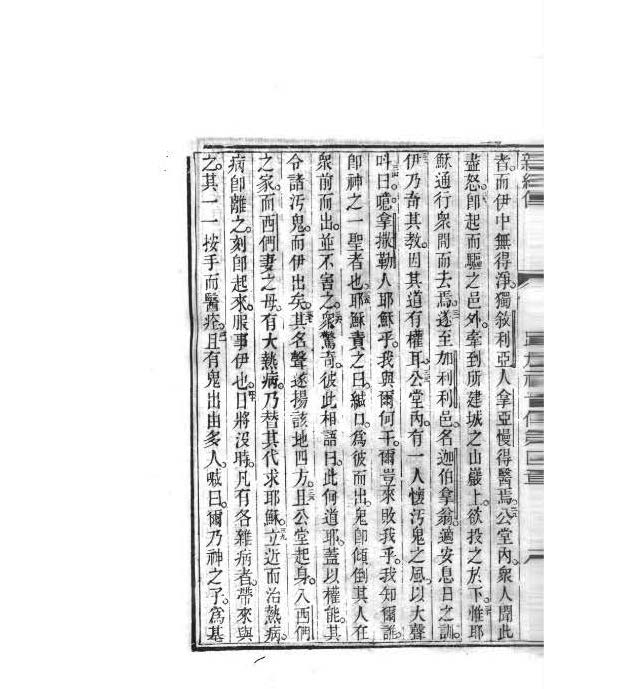 者而伊中無得淨。獨敘利亞人拿亞慢得醫焉。公堂內。衆人聞此
盡怒。卽起而驅之邑外。牽到所建城之山巖上。欲投之於下。惟耶
穌通行衆間而去焉。遂至加利利邑。名迦伯拿翁。適安息日之訓
伊乃奇其教。因其道有權耳。公堂內。有一人懷汚鬼之風。以大聲
呌曰。噫。拿撒勒人耶穌乎。我與爾何干。爾豈來敗我乎。我知爾誰。
卽神之一聖者也。耶穌責之曰。緘口。爲彼而出。鬼卽傾倒其人在
衆前而出。並不害之。衆驚奇。彼此相語曰。此何道耶。蓋以權能。其
令諸汚鬼。而伊出矣。其名聲遂揚該地四方。且公堂起身。入西們
之家。而西們妻之母。有大熱病。乃替其代求耶穌。立近而治熱病。
病卽離之。刻卽起來。服事伊也。日將沒時。凡有各雜病者。帶來與
之。其一一按手而醫痊。且有鬼出由多人。喊曰。爾乃神之子爲基